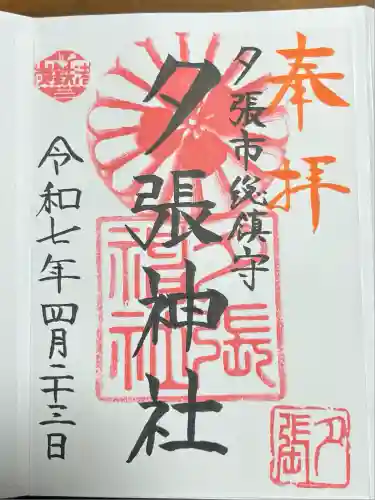 奉拝
夕張市総鎮守
夕張神社
令和七年四月二十三日
夕張
神社
夕張